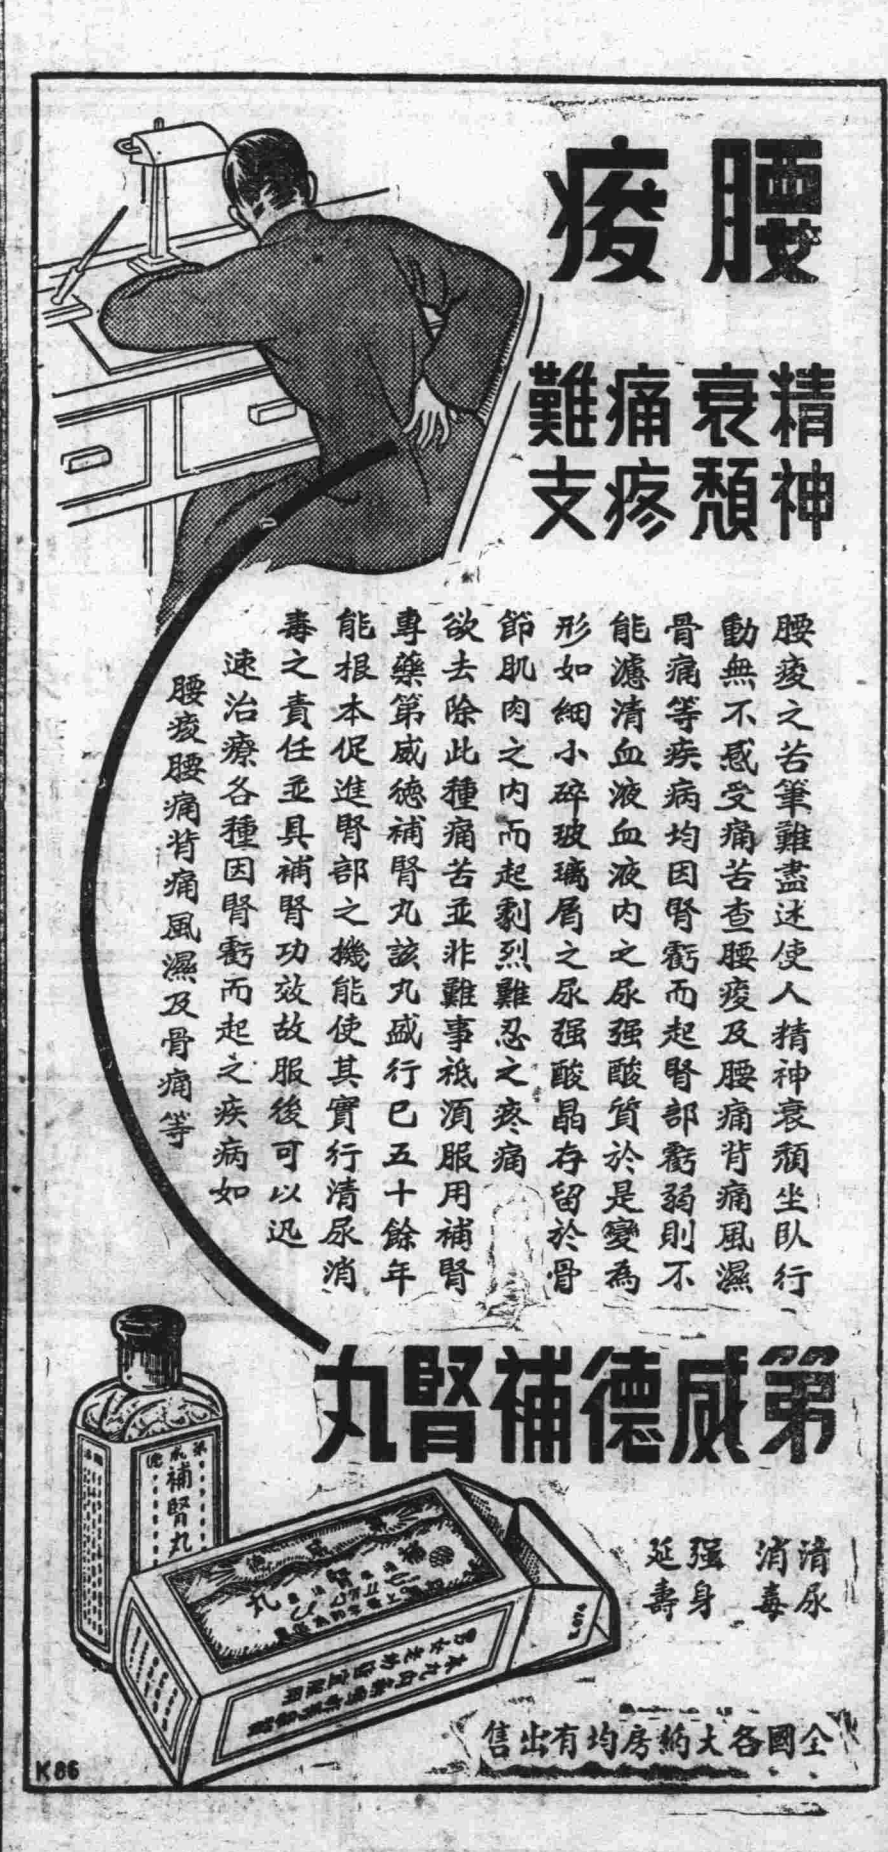 腰痠
精神
衰頹
痛疼
難支
腰痠之苦筆難盡述使人精神衰頹坐臥行
動無不感受痛苦查腰痠及腰痛背痛風濕
骨痛等疾病均因腎虧而起腎部虧弱則不
能濾清血液血液內之尿强酸質於是變為
形如細小碎玻璃屑之尿强酸晶存留於骨
節肌肉之內而起劇烈難忍之疼痛
欲去除此種痛苦並非難事祗須服用補腎
專藥第威德補腎丸該丸盛行已五十餘年
能根本促進腎部之機能使其實行清尿消
毒之責任並具補腎功效故服後可以迅
速治療各種因腎虧而起之疾病如
腰痠腰痛背痛風濕及骨痛等
第威德補腎丸
清尿
消毒
强身
延壽
補腎丸
全國各大葯房均有出售
K86